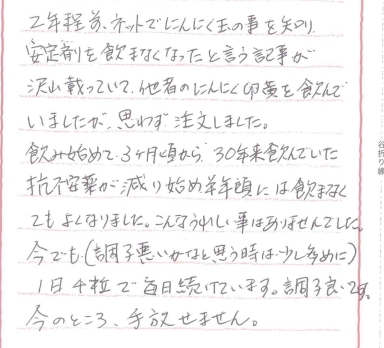 2年程前、ネットでにんにく玉の事を知り、
安定剤を飲まなくなったと言う記事が
沢山載っていて、他者のにんにく卵黄を飲んで
いましたが、思わず注文しました。
飲み始めて、3ヶ月頃から、30年来飲んでいた
抗不安薬が減り始め半年頃には飲まなく
てもよくなりました。こんなうれしい事はありませんでした。
今でも、(調子悪いかなと思う時は少し多めに)
1日4粒で毎日続けています。調子良いです。
今のところ、手放せません。
谷折り線